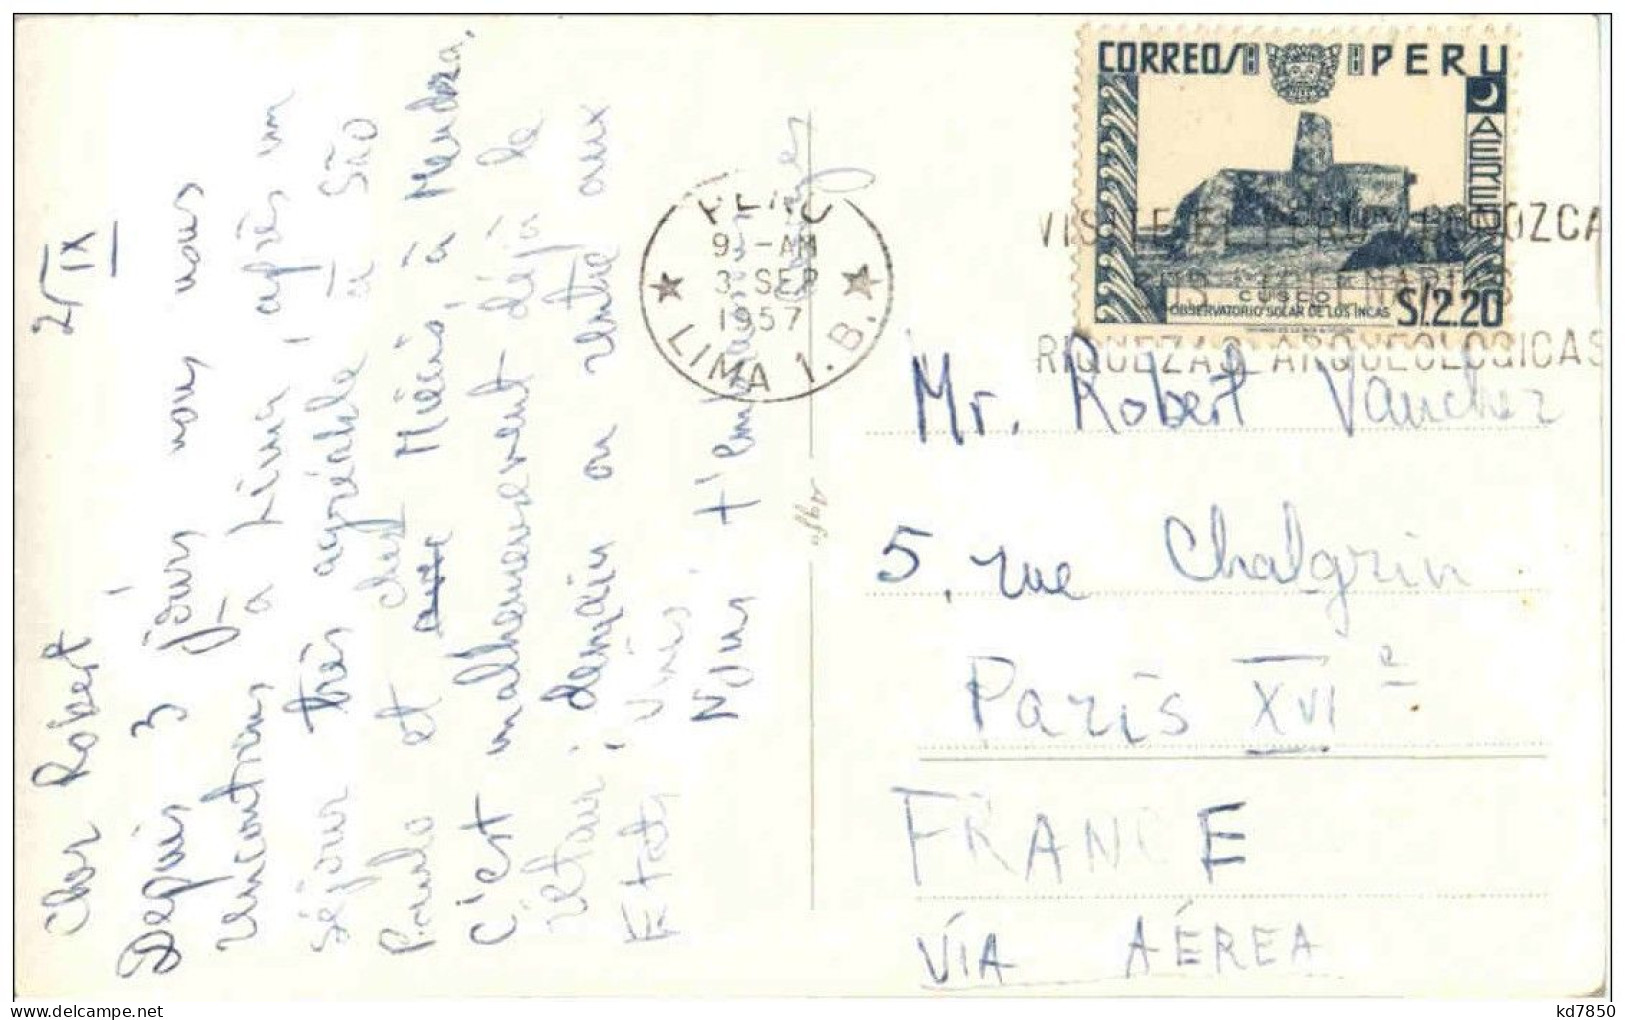 2/IX
Cher Robert
Depuis 3 jours nous nous
rencontrons à Lima, après un
séjour très agréable à São
Paulo et chez Miécis à Mendoza.
C'est malheureusement déjà le
retour; demain on rentre aux
Etats Unis.
Nous t'embrassons
PERU
9 - AM
3 SEP
1957
LIMA 1. B.
CORREOS PERU
AEREO
CUSCO
OBSERVATORIO SOLAR DE LOS INCAS
S/2.20
VISITE EL PERU Y CONOZCA
RIQUEZAS ARQUEOLOGICAS
Mr. Robert Vaucher
5, rue Chalgrin
Paris XVI e
FRANCE
VÍA AÉREA
kd7850